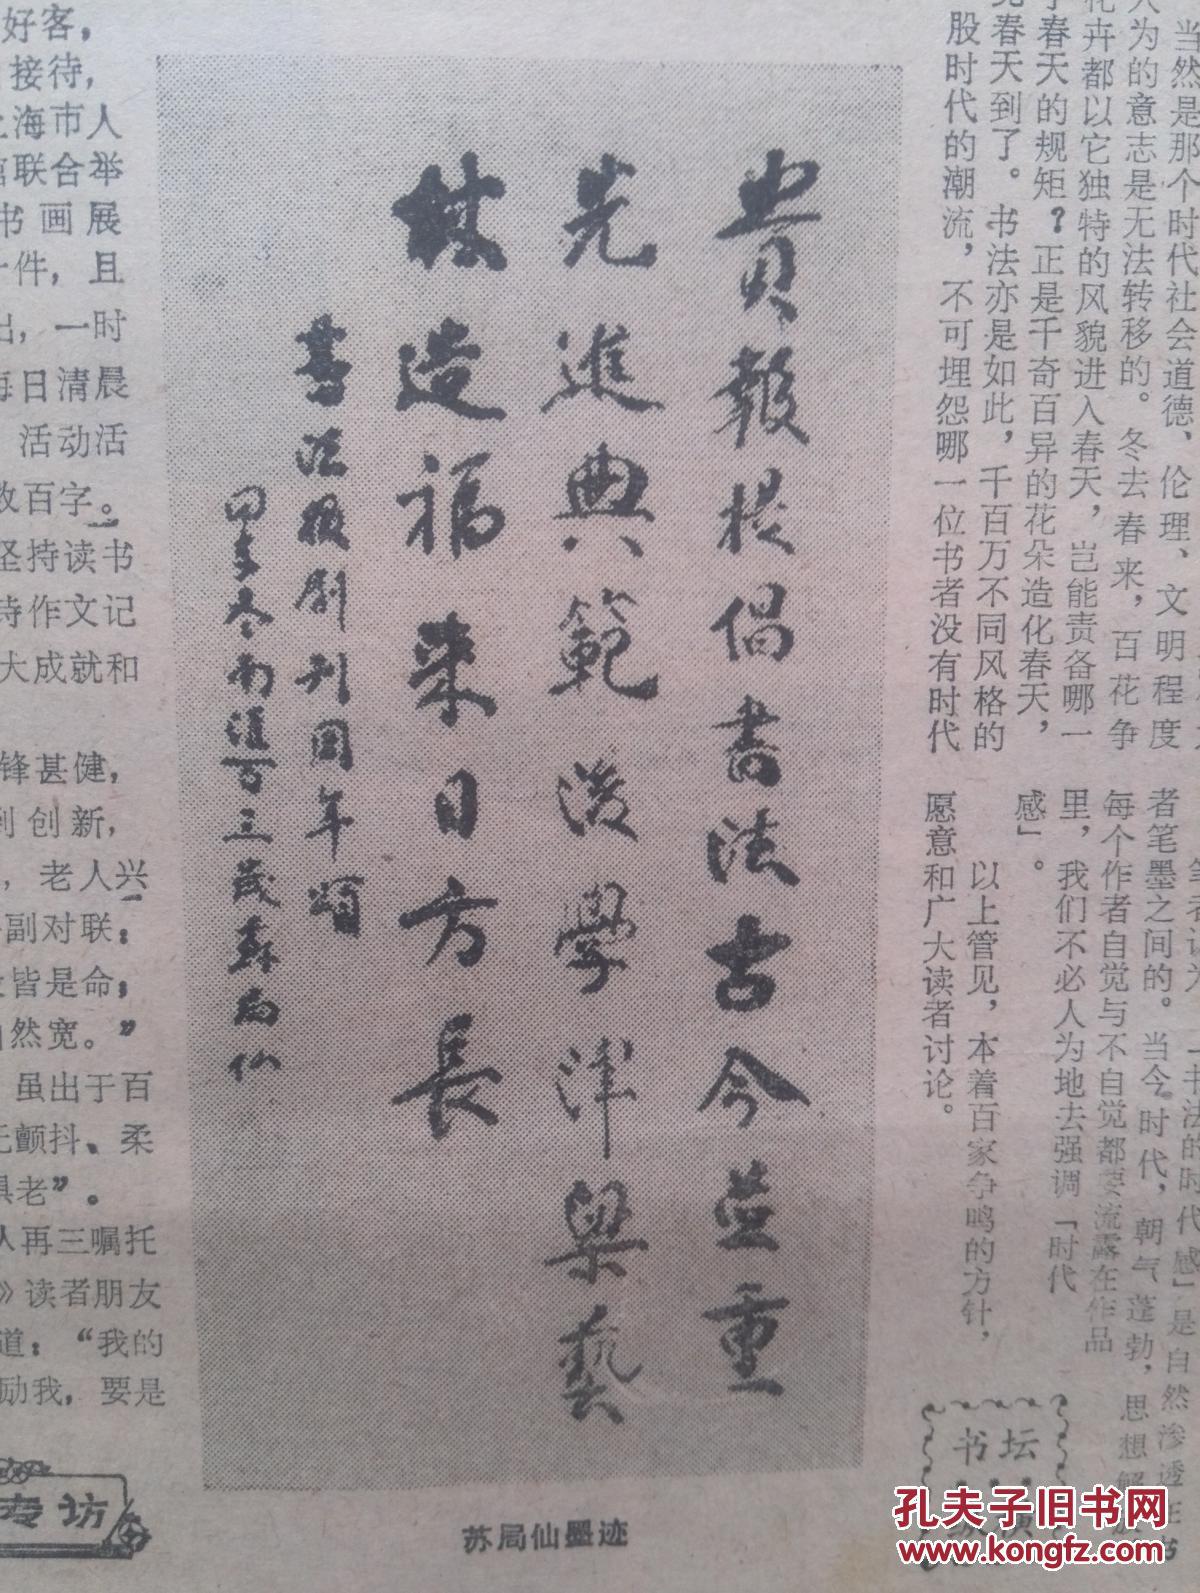 貴報提倡書法古今並重
先進典範後學津梁藝
林造福来日方長
書法报創刊周年頌
南滙百三歲蘇局仙
苏局仙墨迹
当然是那个时代社会道德、伦理、文明程度
人为的意志是无法转移的。冬去春来，百花争
花卉都以它独特的风貌进入春天，岂能责备哪一
春天的规矩？正是千奇百异的花朵造化春天，
春天到了。书法亦是如此，千百万不同风格的
股时代的潮流，不可埋怨哪一位书者没有时代
「书法的时代感」是自然渗透在书
者笔墨之间的。当今时代，朝气蓬勃，思想解
每个作者自觉与不自觉都要流露在作品
里，我们不必人为地去强调「时代
感」。
以上管见，本着百家争鸣的方针，
愿意和广大读者讨论。
书坛
好客，
接待，
上海市人
馆联合举
书画展
件，且
出，一时
每日清晨
活动活
数百字。
坚持读书
诗作文记
大成就和
锋甚健，
到创新，
，老人兴
副对联：
皆是命；
自然宽。”
虽出于百
无颤抖、柔
俱老”。
人再三嘱托
》读者朋友
道：“我的
励我，要是
专坊
孔夫子旧书网
www.kongfz.com